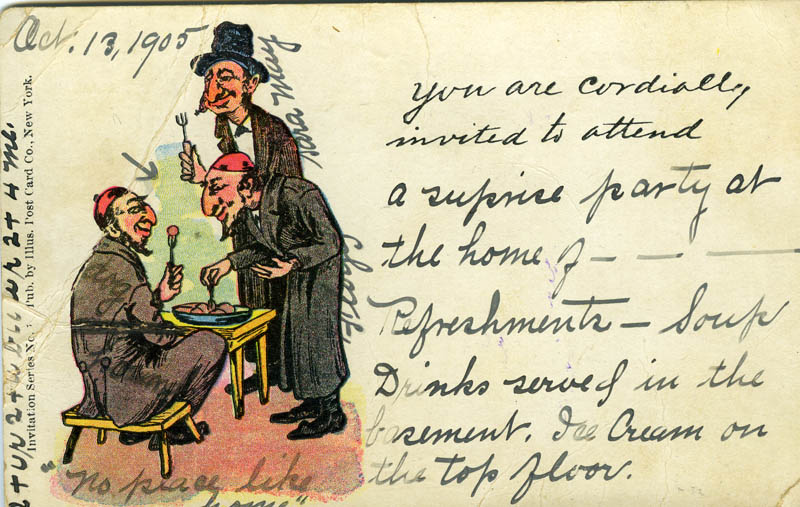 Oct. 13, 1905
You are cordially
invited to attend
a suprise party at
the home of — — —
Refreshments — Soup
Drinks served in the
basement. Ice Cream on
the top floor.
"No place like
home"
Invitation Series No. Pub. by Illus. Post Card Co., New York.
May